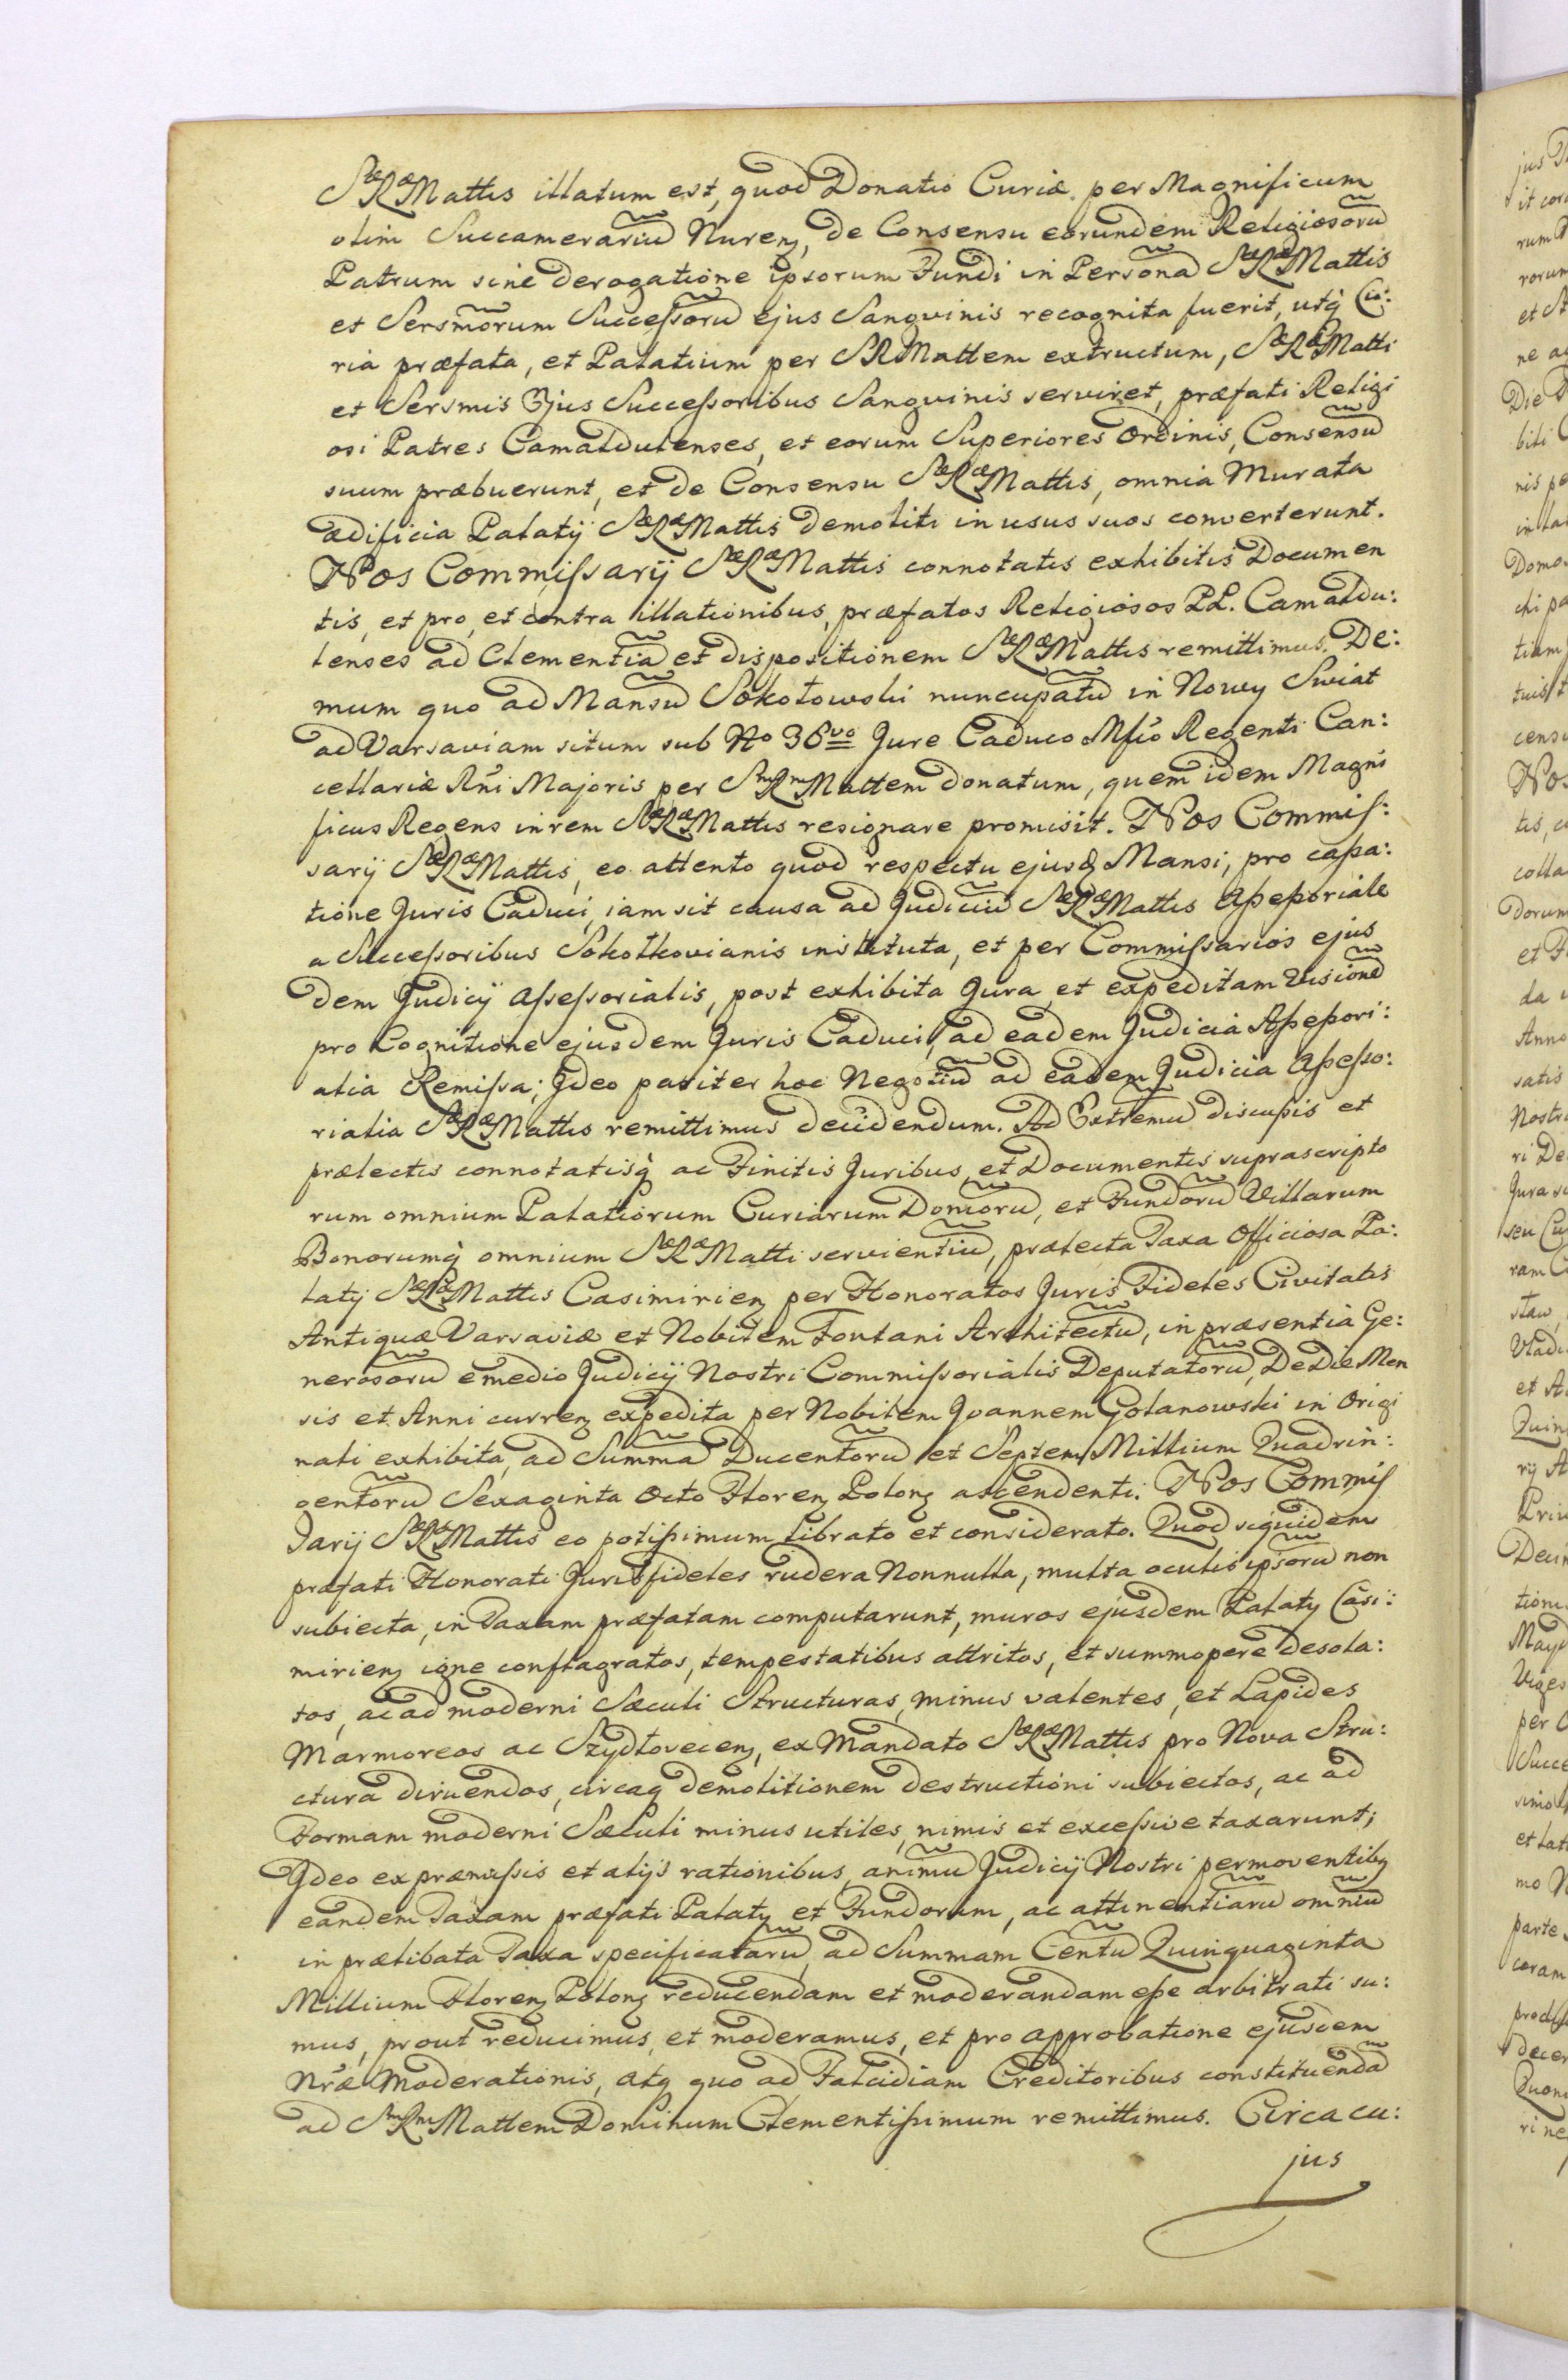 SæRæMattis illatum est, quod Donatio Curiæ per Magnificum
olim Succamerariũ Nureng, de Consensu eorundem Religiosorũ
Patrum sine derogatione ipsorum Fundi in Persona SæRæMattis
et Sersmõrum Successorũ ejus Sangvinis recognita fuerit, utq̃ Cu:
ria præfata, et Palatium per SRMattem extructum, SæRæMatti
et Sersmis Ejus Successoribus Sangvinis serviret, præfati Religi
osi Patres Camaldulenses, et eorum Superiores Ordinis, Consensũ
suum præbuerunt, et de Consensu SæRæMattis, omnia Murata
ædificia Palatij SæRæMattis demoliti in usus suos converterunt.
Nos Commissarij SæRæMattis connotatis exhibitis Documen
tis, et pro, et contra illationibus, præfatos Religiosos PP. Camaldu:
lenses ad Clementiã et dispositionem SæRæMattis remittimus. De:
mum quo ad Mansũ Sokołowski nuncupatũ in Nowy Swiat
ad Varsaviam situm sub No 36vo Jure Caduco Mfco Regenti Can:
cellariæ Rñi Majoris per SmRmMattem donatum, quem idem Magni
ficus Regens in rem SæRæMattis resignare promisit. Nos Commis:
sarij SæRæMattis, eo attento quod respectu ejusd Mansi, pro cassa:
tione Juris Caduci, iam sit causa ad Judiciũ SæRæMattis Assessoriale
a Successoribus Sokołkovianis instituta, et per Commissarios ejus
dem Judicij Assessorialis, post exhibita Jura et expeditam Visionẽ
pro Cognitione ejusdem Juris Caduci, ad eadem Judicia Assessori:
alia Remissa; Ideo pariter hoc Negotiũ ad eadem Judicia Assesso:
rialia SæRæMattis remittimus decidendum. Ad Extremũ discussis et
prælectis connotatisq̃ ac Finitis Juribus, et Documentis suprascripto
rum omnium Palatiorum Curiarum Domorũ, et Fundorũ Villarum
Bonorumq̃ omnium SæRæMatti servientiũ, prælecta Taxa Officiosa Pa:
latij SæRæMattis Casimirieng per Honoratos Juris Fideles Civitatis
Antiquæ Varsaviæ et Nobilem Fontani Architectũ, in præsentia Ge:
nerosorũ e medio Judicij Nostri Commissorialis Deputatorũ, De Die Men
sis et Anni curreng expedita per Nobilem Joannem Golanowski in Origi
nali exhibita, ad Summã Ducentorũ et Septem Millium Quadrin:
gentorũ Sexaginta Octo Floreng Polong ascendenti. Nos Commis
sarij SæRæMattis eo potissimum librato et considerato. Quod siquidem
præfati Honorati Jurisfideles rudera Nonnulla, multa oculis ipsorũ non
subiecta, in Taxam præfatam computarunt, muros ejusdem Palatij Casi:
mirieng igne conflagratos, tempestatibus attritos, et summopere desola:
tos, ac ad moderni Sæculi Structuras, minus valentes, et Lapides
Marmoreos ac Szydłoveceng, ex Mandato SæRæMattis pro Nova Stru:
ctura diruendos, circaq demolitionem destructioni subiectos, ac ad
Formam moderni Sæculi minus utiles, nimis et excessive taxarunt;
Ideo ex præmissis et alijs rationibus animũ Judicij Nostri permoventibg
eandem Taxam præfati Palatij et Fundorum, ac attinentiarũ omniũ
in prælibata Taxa specificatarũ, ad Summam Centũ Quinquaginta
Millium Floreng Polong reducendam et moderandam esse arbitrati su:
mus, prout reducimus, et moderamus, et pro approbatione ejusdem
Nræ Moderationis, atq quo ad Falcidiam Creditoribus constituendã
ad SmRmMattem Dominum Clementissimum remittimus. Circa cu:
jus